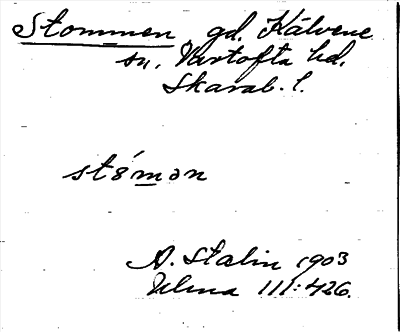 Stommen, gd. Kälvene
sn. Vartofta hd.
Skarab. l.
stómən
A. Stalin 1903
111:426.